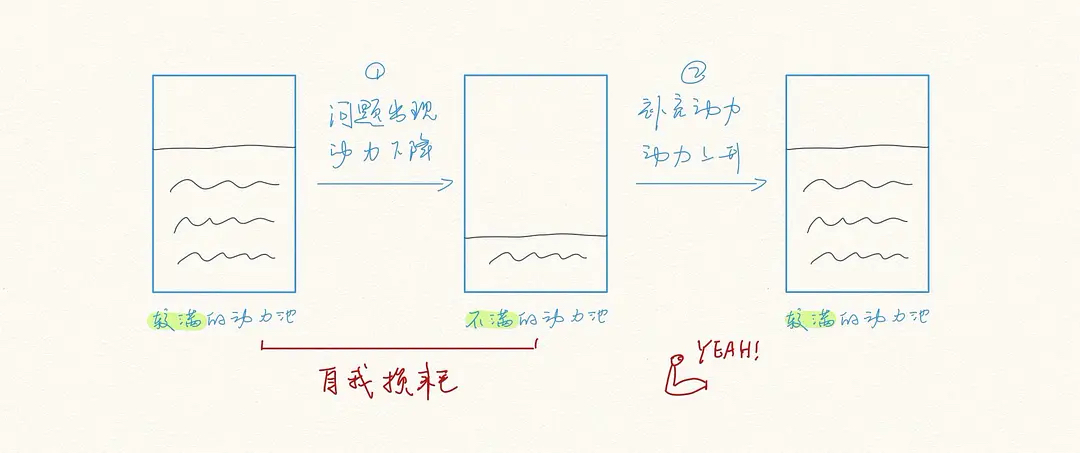 ①
问题出现
动力下降
②
补充动力
动力上升
较满的动力池
不满的动力池
较满的动力池
自我损耗
YEAH!